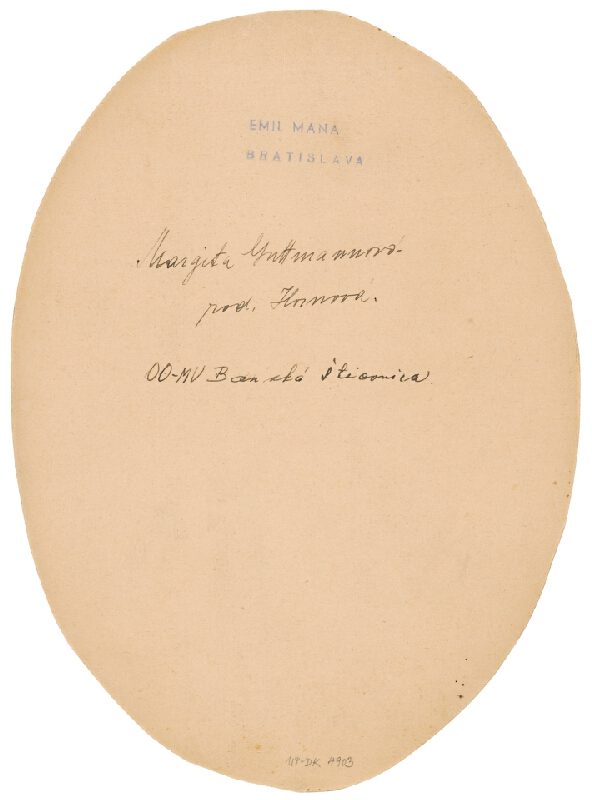 EMIL MANA
BRATISLAVA
Margita Guttmannová-
pod.
OO-MV Banská Štiavnica
UP-DK 4903